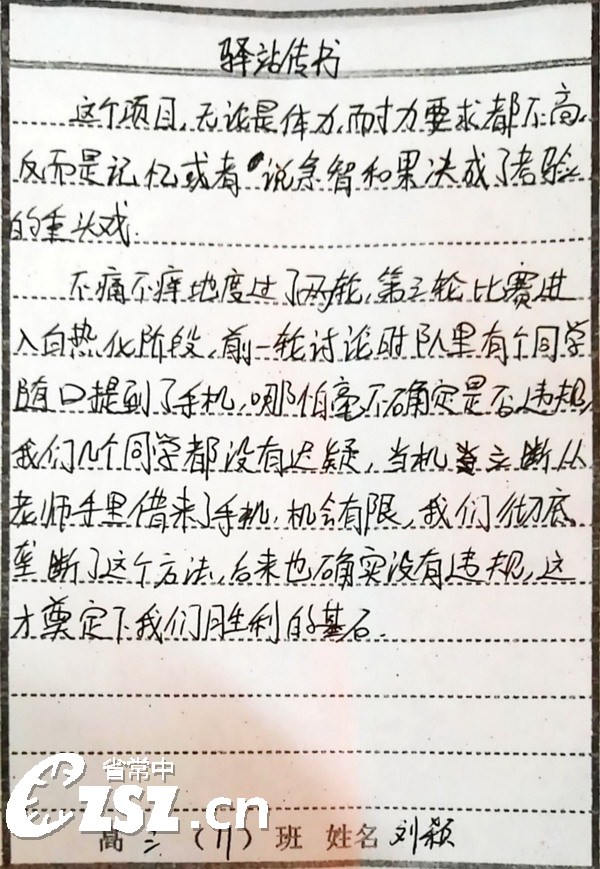 驿站传书
这个项目,无论是体力,耐力要求都不高,
反而是记忆或者说急智和果决成了考验
的重头戏.
不痛不痒地度过了两轮,第三轮比赛进
入白热化阶段,前一轮讨论时队里有个同学
随口提到了手机,哪怕毫不确定是否违规,
我们几个同学都没有迟疑,当机立断从
老师手里借来了手机,机会有限,我们彻底
垄断了这个方法,后来也确实没有违规,这
才奠定下我们胜利的基石.
省常中
CZSZ.cn
高二(11)班 姓名 刘颖